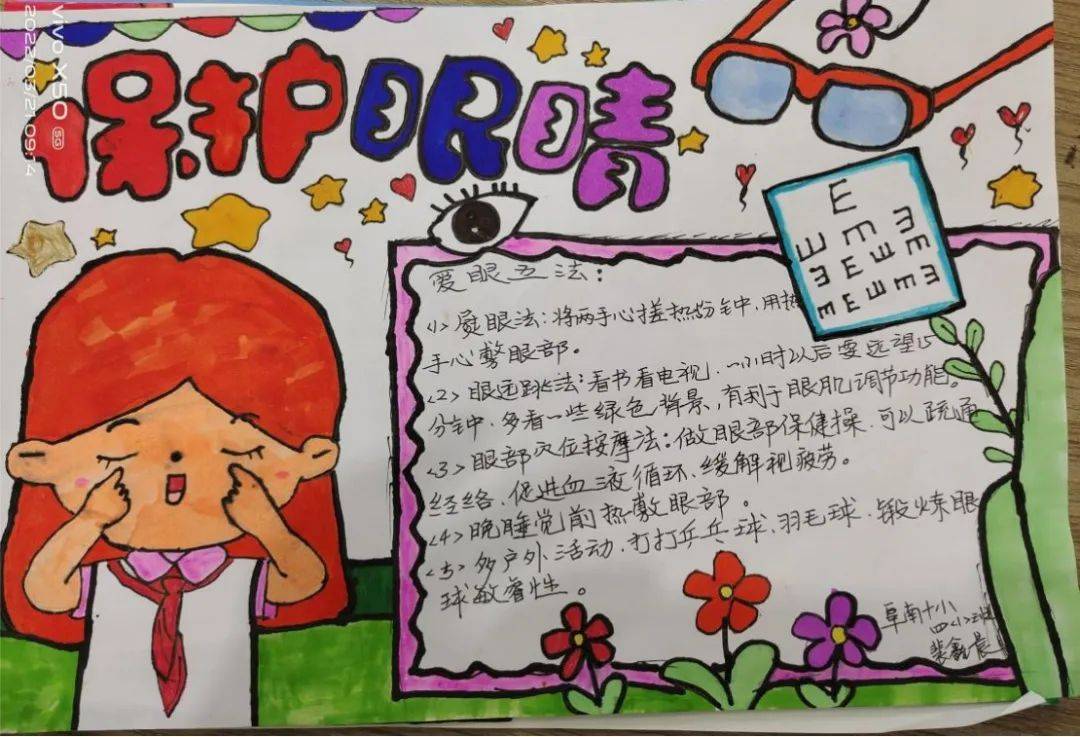 vivo X50 5G
2022/03/21 09:14
保护眼睛
爱眼五法:
<1>熨眼法:将两手心搓热份钟,用热
手心敷眼部。
<2>眼远跳法:看书看电视,一小时以后要远望15
分钟,多看一些绿色背景,有利于眼肌调节功能。
<3>眼部穴位按摩法:做眼部保健操,可以疏通
经络,促进血液循环,缓解视疲劳。
<4>晚睡觉前热敷眼部。
<5>多户外活动,打打乒乓球,羽毛球,锻炼眼
球敏睿性。
阜南十小
四<1>班
鑫晨
E
E E E
E E E E
E E E E E